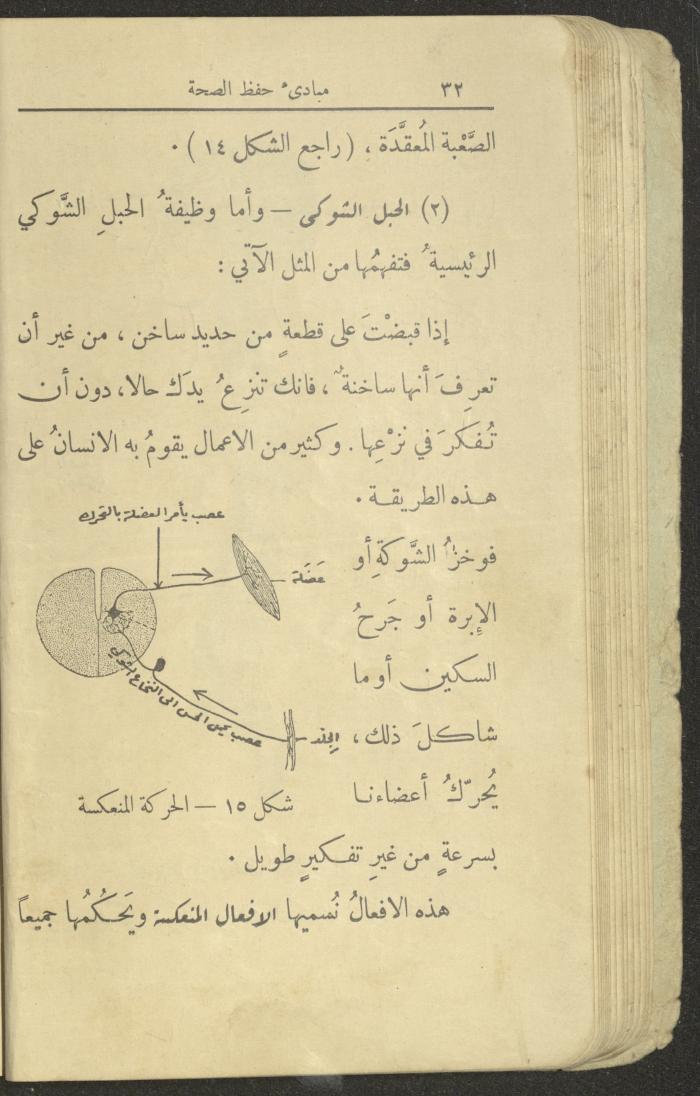 ٣٢ مبادىء حفظ الصحة
الصَّعْبة المُعقَّدَة ، (راجع الشكل ١٤) ٠
(٢) الحبل الشوكى – وأما وظيفةُ الحبلِ الشَّوكي
الرئيسيةُ فتفهمُها من المثل الآتي :
إذا قبضْتَ على قطعةٍ من حديد ساخن ، من غير أن
تعرِفَ أنها ساخنةٌ ، فانك تنزِعُ يدَك حالا، دون أن
تُفكرَ في نزْعِها . وكثير من الاعمال يقومُ به الانسانُ على
هذه الطريقة ٠
عصب يأمر العضلة بالتحرك
عَضَلة
عصب يحمل الحس الى النخاع الشوكي
الجلد
شكل ١٥ – الحركة المنعكسة
فوخزُ الشَّوكةِ أو
الإبرة أو جَرحُ
السكين أو ما
شاكلَ ذلك ،
يُحرّكُ أعضاءنا
بسرعةٍ من غيرِ تفكيرٍ طويل ٠
هذه الافعالُ نُسميها الافعال المنعكسة ويَحكُمُها جميعاً